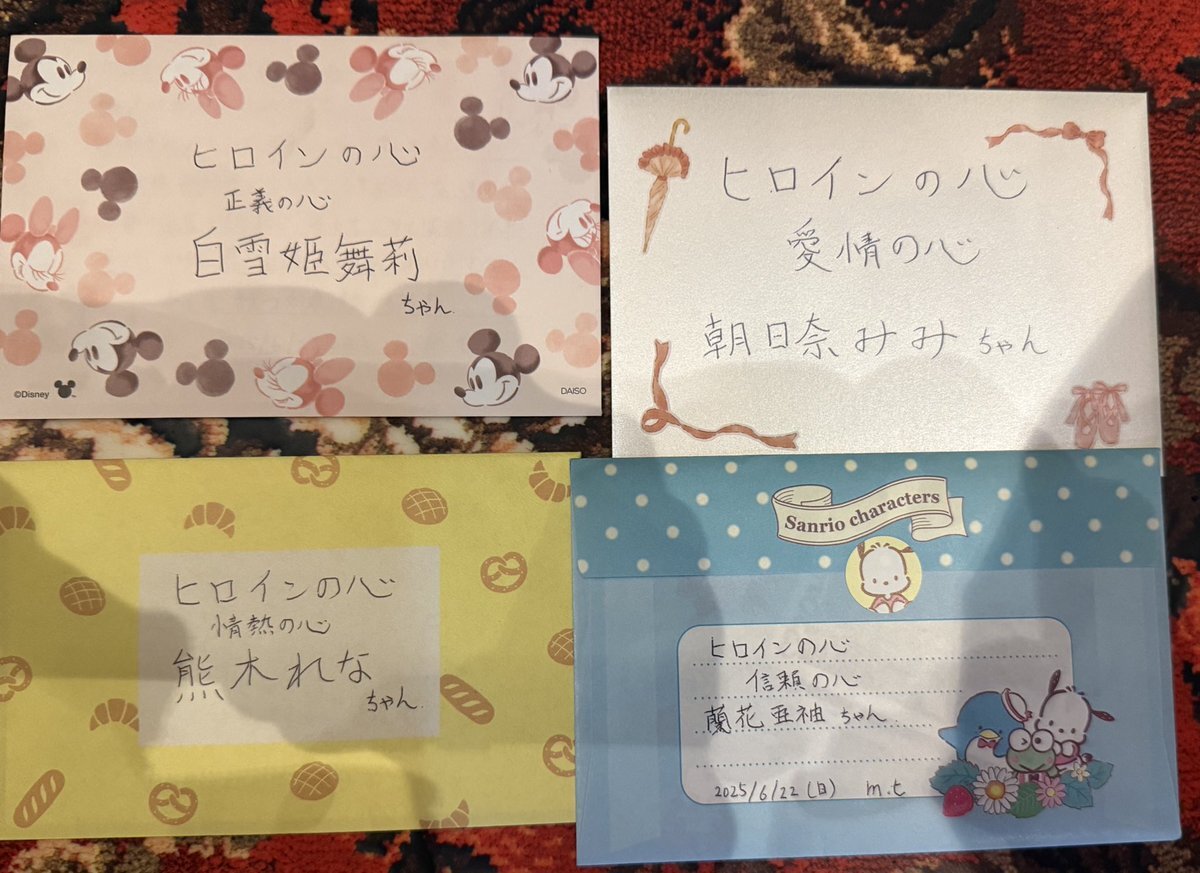 ヒロインの心
正義の心
白雪姫舞莉
ちゃん
©Disney
DAISO
ヒロインの心
愛情の心
朝日奈みみちゃん
ヒロインの心
情熱の心
熊木れな
ちゃん
Sanrio characters
ヒロインの心
信頼の心
蘭花亜袖ちゃん
2025/6/22(日) m.t